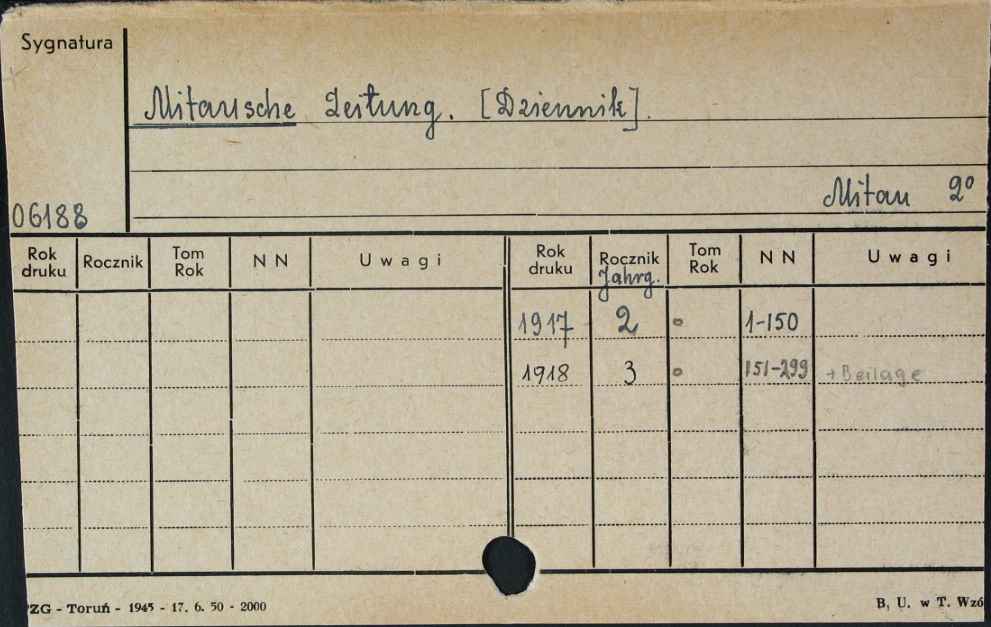 Sygnatura
Mitausche Zeitung. [Dziennik].
Mitau 2°
06188
Rok druku Rocznik Tom Rok N N Uwagi Rok druku Rocznik Jahrg. Tom Rok N N Uwagi
1917 2 o 1-150
1918 3 o 151-299 + Beilage
PZG - Toruń - 1945 - 17. 6. 50 - 2000
B. U. w T. Wzó